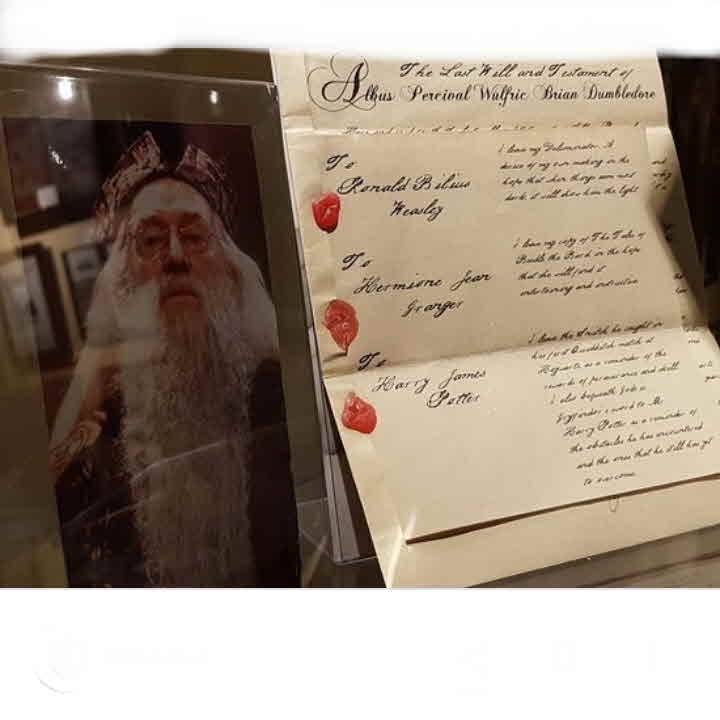 The Last Will and Testament of
Albus Percival Wulfric Brian Dumbledore
To
Ronald Bilius
Weasley
I leave my Deluminator. A
device of my own making in the
hope that when things seem most
dark, it will show him the light
To
Hermione Jean
Granger
I leave my copy of The Tales of
Beedle the Bard in the hope
that she will find it
entertaining and instructive
To
Harry James
Potter
I leave the Snitch he caught in
his first Quidditch match at
Hogwarts as a reminder of the
rewards of perseverance and skill
I also bequeath
Gryffindor sword to Mr
Harry Potter as a reminder of
the obstacles he has encountered
and the ones that he still has yet
to overcome